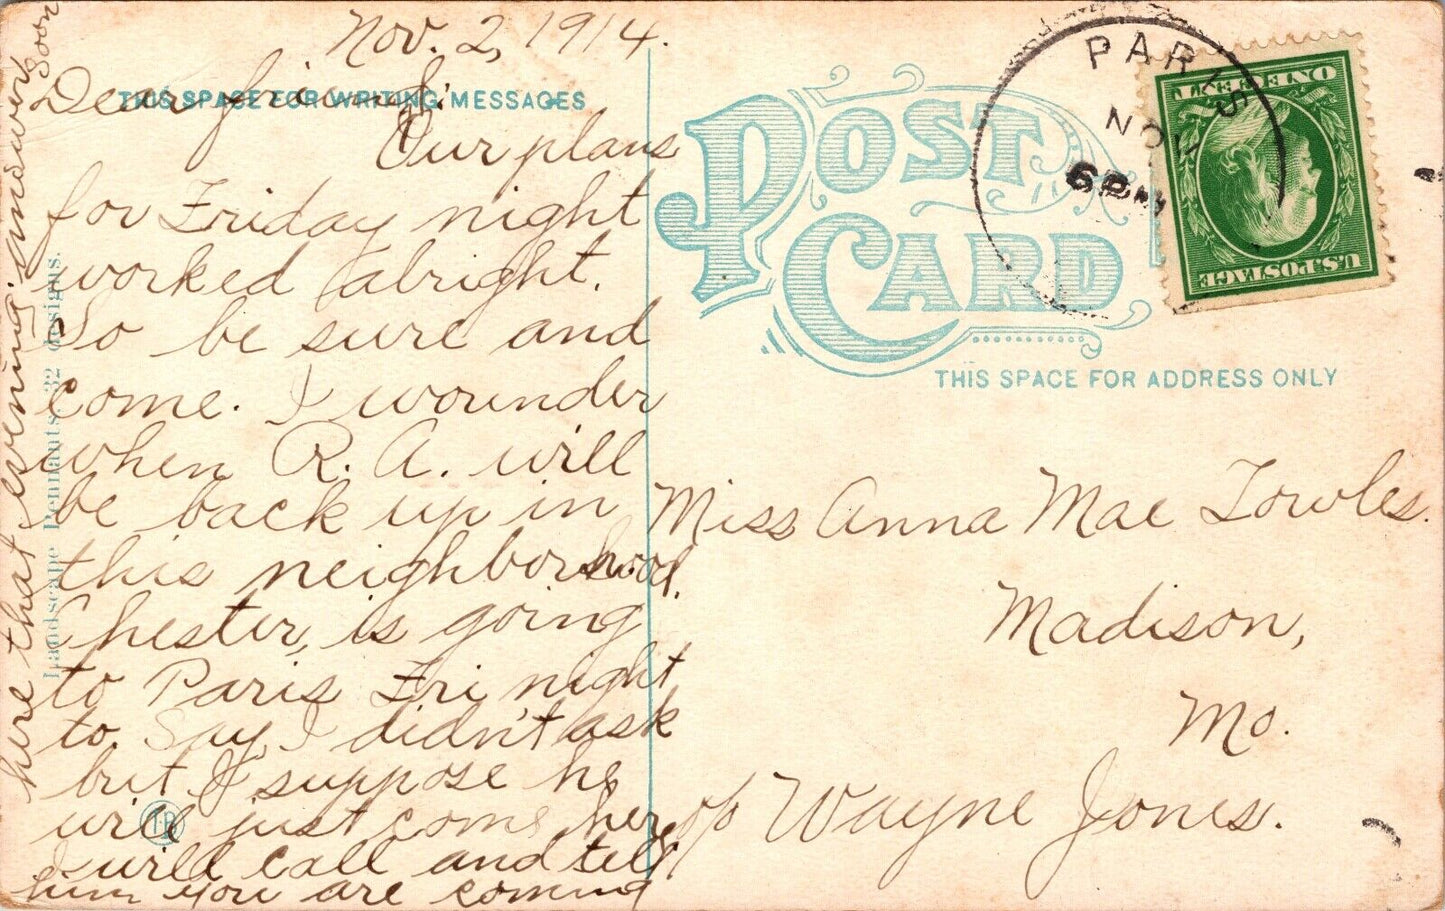 Nov. 2, 1914.
THIS SPACE FOR WRITING MESSAGES
Dear friend:
Our plans
for Friday night
worked alright.
So be sure and
come. I wounder
when R. A. will
be back up in
this neighborhood.
Chester, is going
to Paris Fri night
to. Say, I didn't ask
but I suppose he
will just come here
I will call and tell
him you are coming
here that evening. answer
soon
Landscape Pennants. 32 designs.
POST
CARD
THIS SPACE FOR ADDRESS ONLY
PARIS
NOV
6 PM
U.S. POSTAGE
ONE CENT
Miss Anna Mae Towles.
Madison,
Mo.
c/o Wayne Jones.